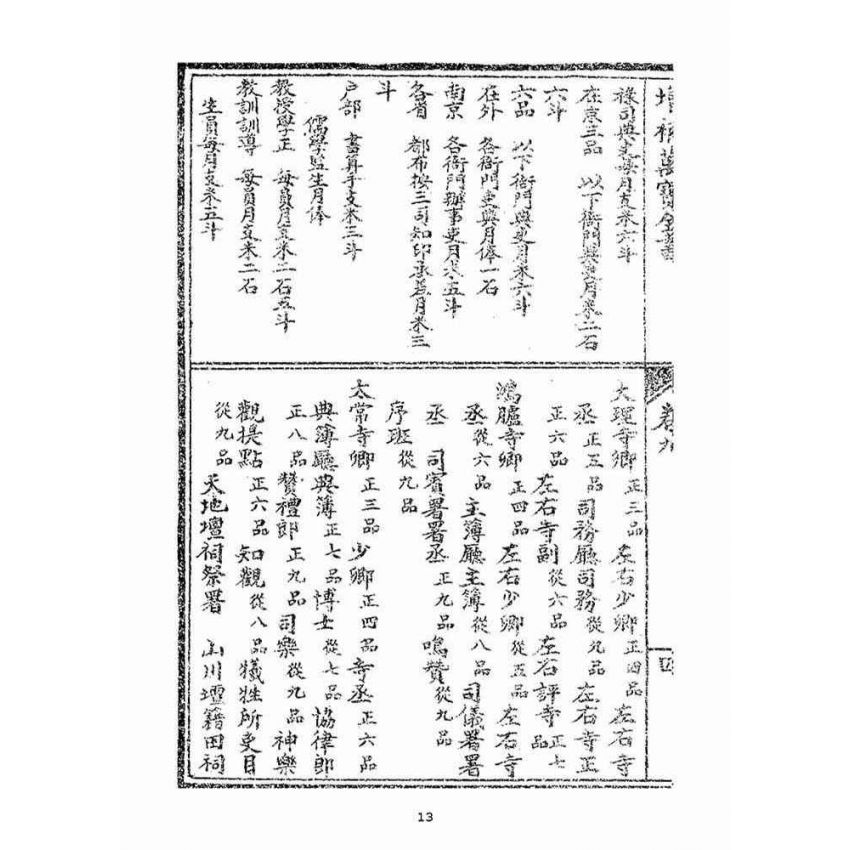 增補萬寶全書
卷九
祿司典吏每月支米六斗
在京三品　以下衙門典吏月米二石
六斗
六品　以下衙門典吏月米六斗
在外　各衙門吏典月俸一石
南京　各衙門辦事吏月米五斗
各省　都布按三司知印承差月米三
斗
戶部　書算手支米三斗
儒學監生月俸
教授學正　每員月支米二石五斗
教訓訓導　每員月支米二石
生員每月支米五斗
大理寺卿正三品　左右少卿正四品　左右寺
丞正五品　司務廳司務從九品　左右寺正
正六品　左右寺副從六品　左右評寺正七品
鴻臚寺卿正四品　左右少卿從五品　左右寺
丞從六品　主簿廳主簿從八品　司儀署署
丞　司賓署署丞正九品　鳴贊從九品
序班從九品
太常寺卿正三品　少卿正四品　寺丞正六品
典簿廳典簿正七品　博士從七品　協律郎
正八品　贊禮郎正九品　司樂從九品　神樂
觀提點正六品　知觀從八品　犧牲所吏目
從九品　天地壇祠祭署　山川壇籍田祠
13